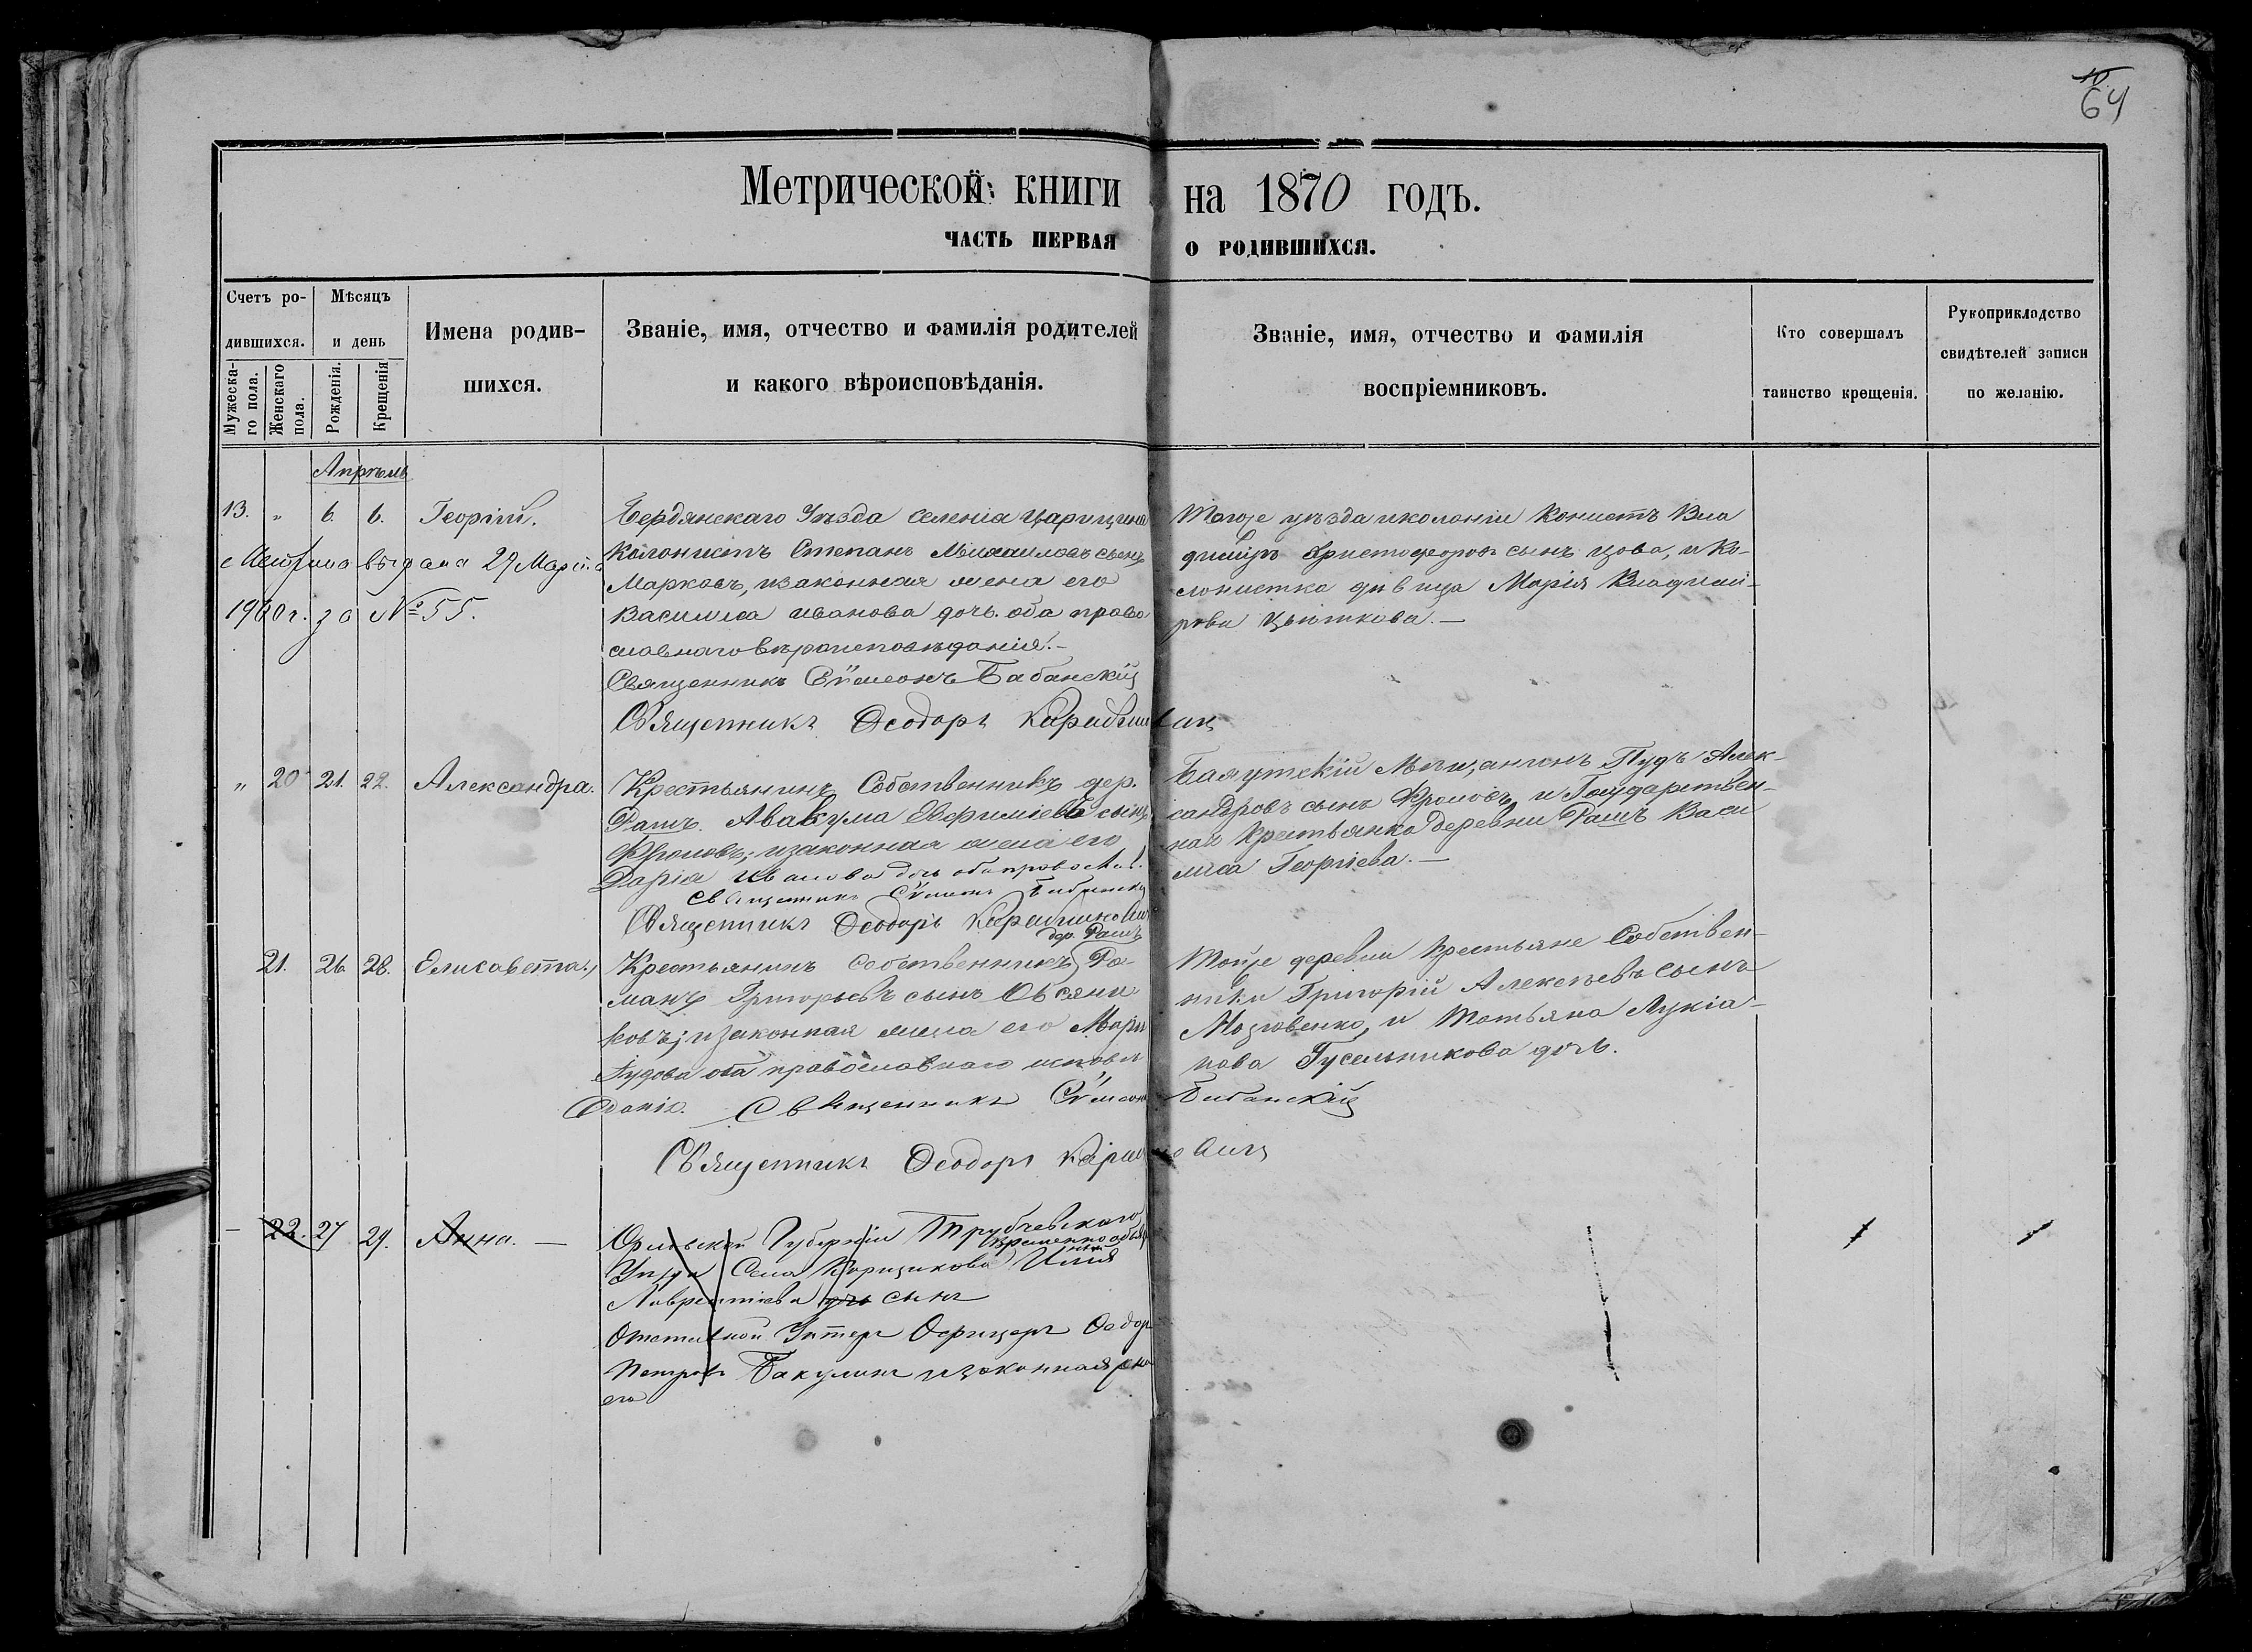 64
Метрической книги на 1870 годъ.
ЧАСТЬ ПЕРВАЯ О РОДИВШИХСЯ.
Счетъ ро-
дившихся.
Мужеска-
го пола.
Женскаго
пола.
Мѣсяцъ
и день
Рожденія.
Крещенія
Имена родив-
шихся.
Званіе, имя, отчество и фамилія родителей
и какого вѣроисповѣданія.
Званіе, имя, отчество и фамилія
воспріемниковъ.
Кто совершалъ
таинство крещенія.
Рукоприкладство
свидѣтелей записи
по желанію.
Апрѣль
13. " 6. 6. Георгій.
выдана 29
за № 55.
Бердянскаго Уѣзда Селенія Царицина
Колонистъ Степанъ Михаиловъ сынъ
Марковъ, и законная жена его
Василиса Иванова дочь. оба право-
славнаго вѣроисповѣданія.-
Священникъ Сѵмеонъ Бабанскій
Священникъ Ѳеодоръ
Того же уѣзда и колоніи Вла
димиръ Христофоровъ сынъ и Ко-
лонистка дѣвица Марія Владими-
рова Цвѣткова.—
" 20 21. 22. Александра.
Крестьянинъ Собственникъ дер.
Авакума Евфиміевъ сынъ
Фроловъ, и законная жена его
Дарія Иванова дочь оба правосл.
Священникъ Сѵмеонъ Бабанскій
Священникъ Ѳеодоръ
Пудъ Алек-
сандровъ сынъ Фроловъ, и Государствен-
ная Крестьянка деревни Васи
лиса Георгіева.—
21. 26. 28. Елисавета.
Крестьянинъ Собственникъ дер. Ро-
манъ Григорьевъ сынъ Овсяни
ковъ; и законная жена его Марія
Пудова оба православнаго исповѣ
данія. Священникъ Сѵмеонъ Бабанскій
Священникъ Ѳеодоръ
Тойже деревни Крестьяне Собствен-
ники Григорій Алексѣевъ сынъ
и Татьяна Лукіа-
нова Гусельникова дочь.
— 22. 27 29. Анна. —
Орловской Губерніи Трубчевскаго
Уѣзда Села
Лаврентіева дочь сынъ
Отставной Унтеръ Офицеръ Ѳедоръ
Петровъ Бакулинъ и законная жена
его